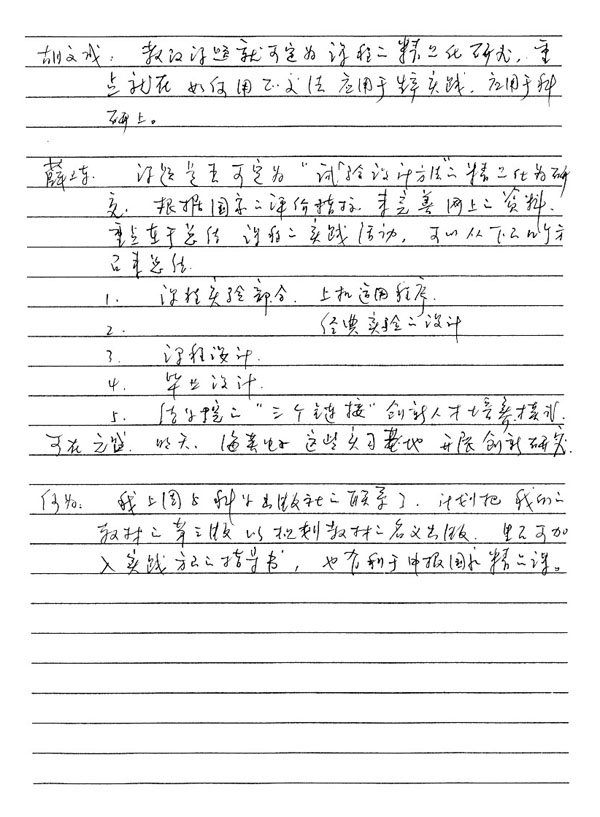 胡文成: 教改课题就可定为课程之精品化研究,重
点就在如何用正交法应用于生产实践,应用于科
研上。
薛工: 课题是否可定为“试验设计方法”之精品化为研
究. 根据国家之评价指标. 来完善网上之资料.
重点在于总结课程之实践活动, 可以从下面的方
面来总结.
1. 课程实验部分. 上机运用程序.
2. 经典实验之设计
3. 课程设计.
4. 毕业设计.
5. 结合之“三个链接”创新人才培养模式.
可在 明天. 海美 这些实习基地开展创新研究.
何为: 我上周与科学出版社之联系了. 计划把我们之
教材之第三版以规划教材之名义出版. 里面可加
入实践方面之指导书, 也有利于申报国家精品课。